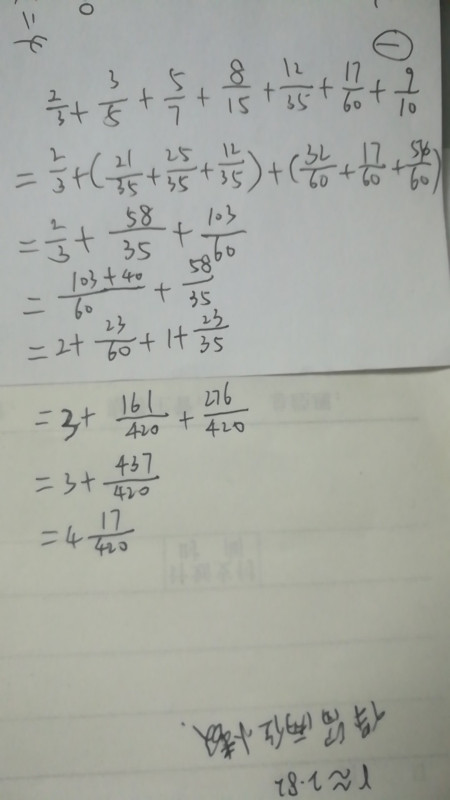 一
2/3 + 3/5 + 5/7 + 8/15 + 12/35 + 17/60 + 9/10
= 2/3 + (21/35 + 25/35 + 12/35) + (32/60 + 17/60 + 54/60)
= 2/3 + 58/35 + 103/60
= (103+40)/60 + 58/35
= 2 + 23/60 + 1 + 23/35
= 3 + 161/420 + 276/420
= 3 + 437/420
= 4 17/420
保留两位小数.
r ≈ 2.82